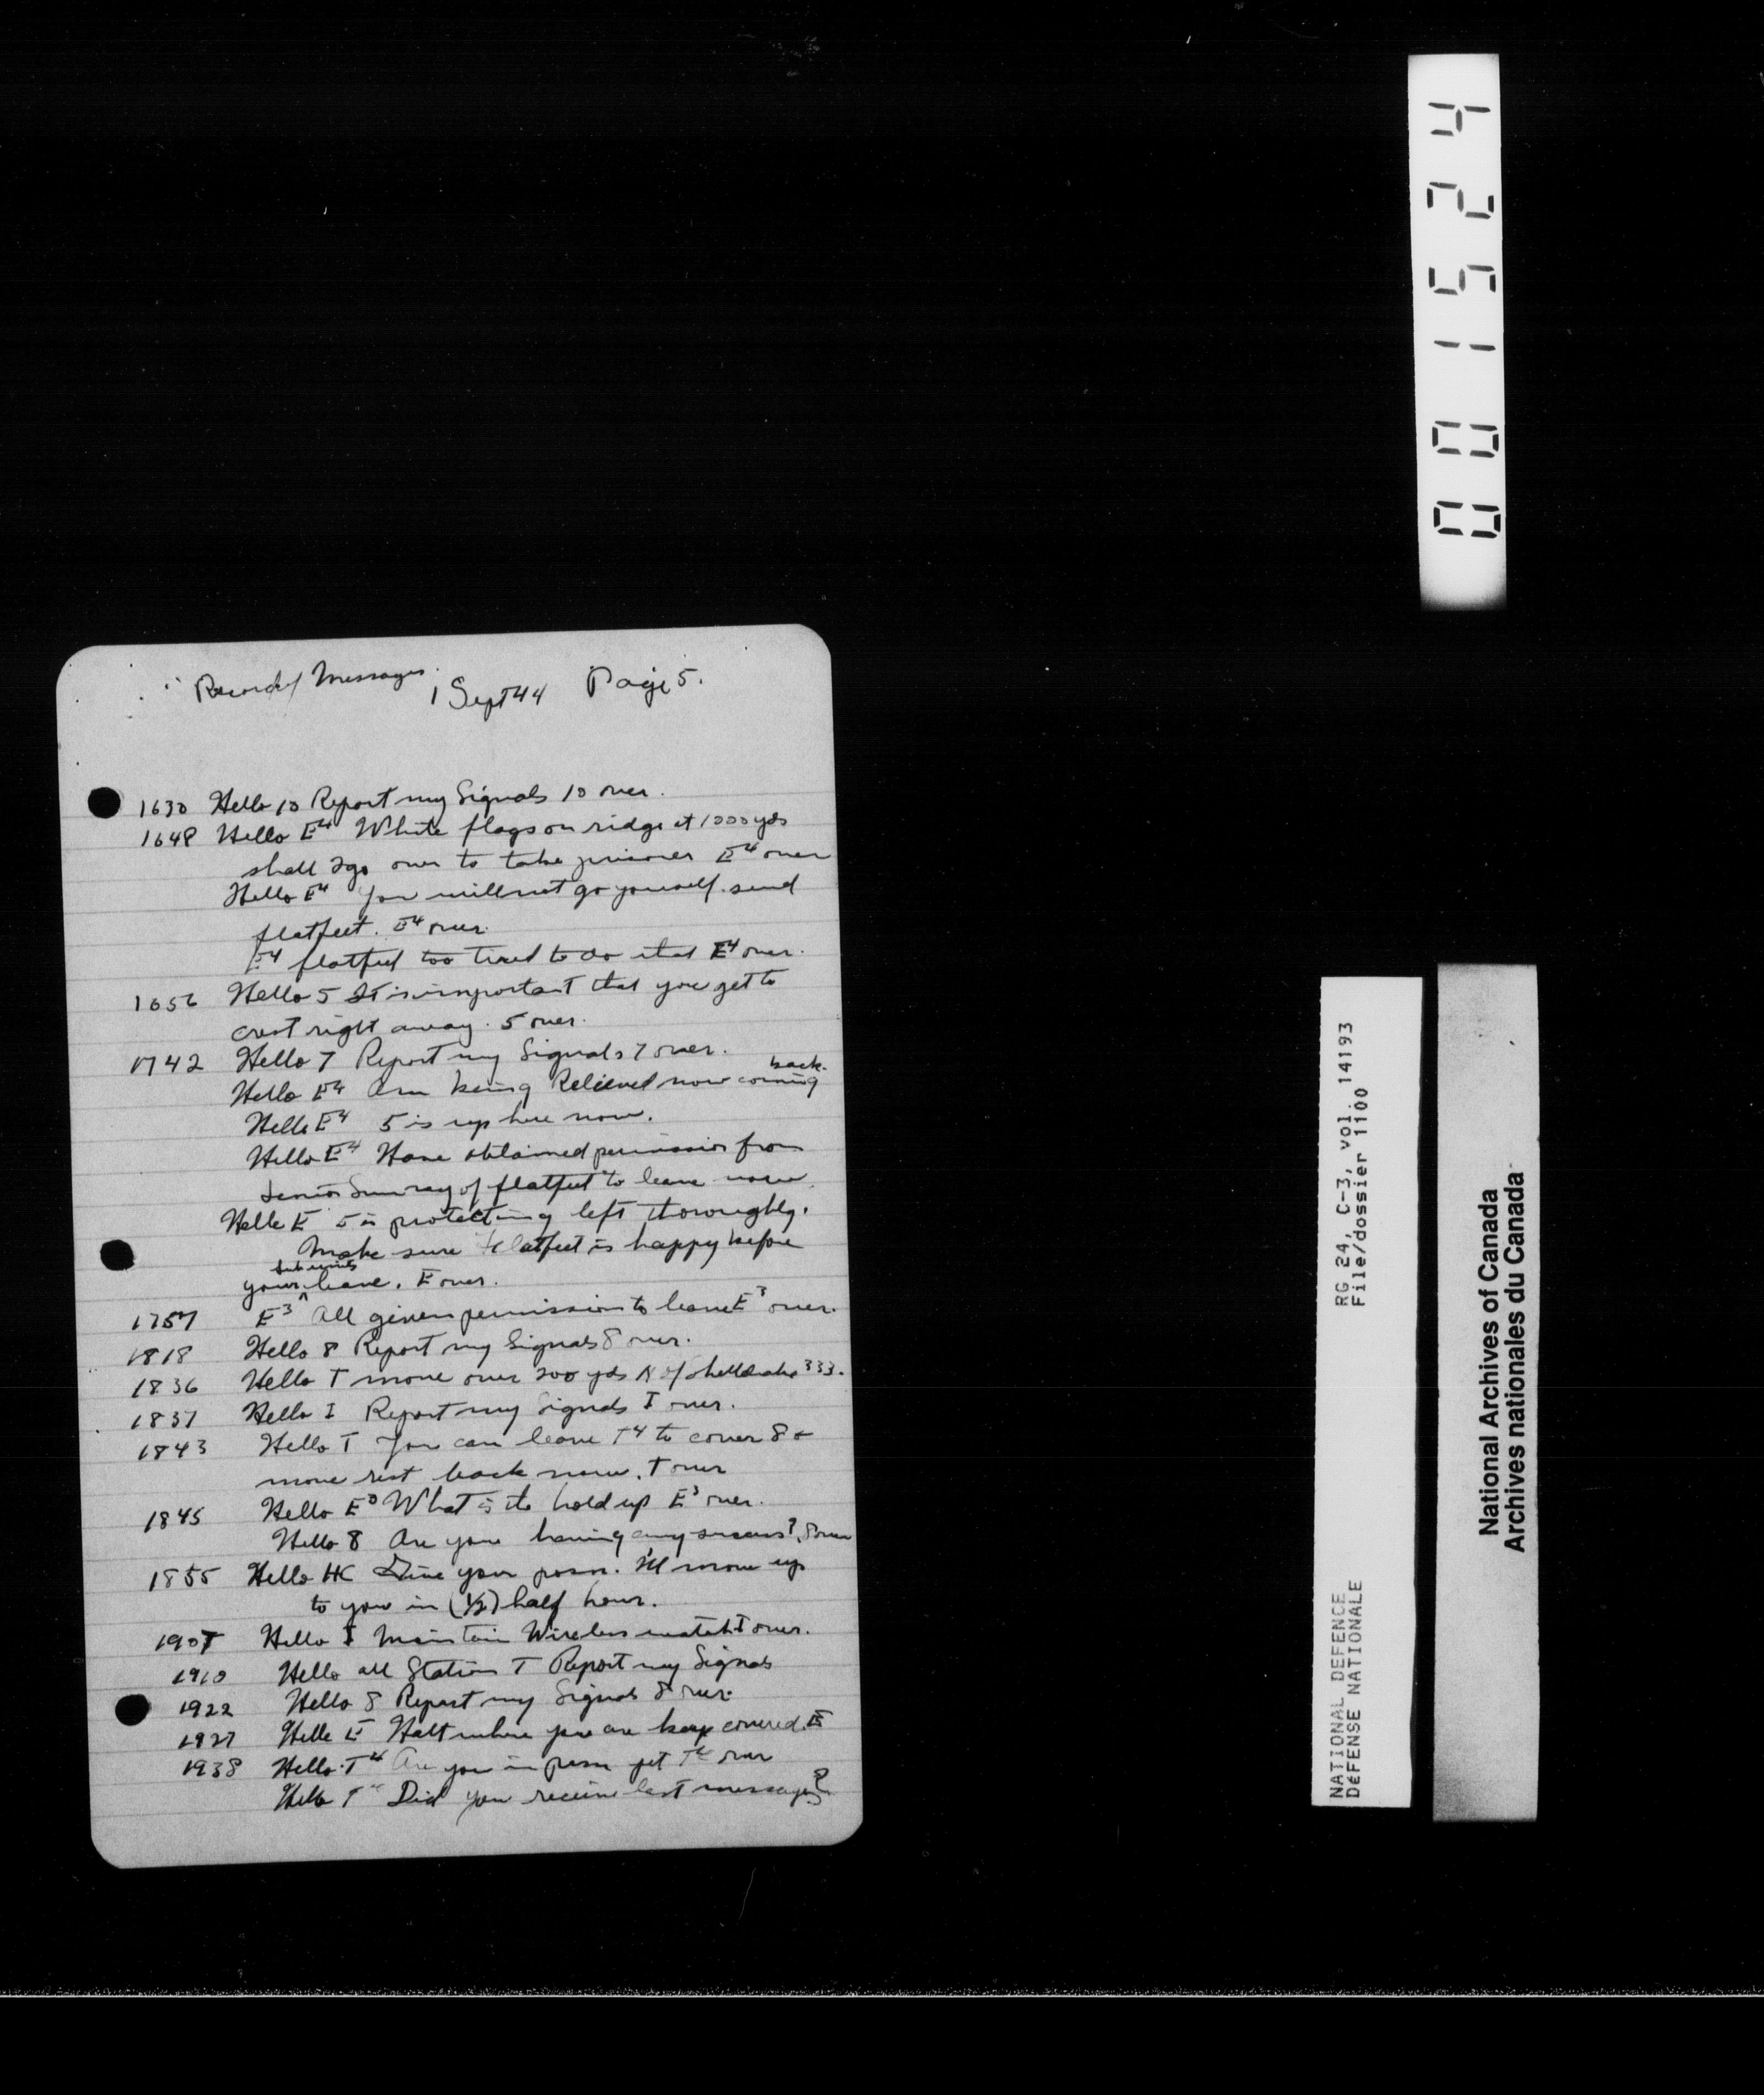 Record of Messages 1 Sept 44 Page 5.
1630 Hello 10 Report my Signals 10 over.
1648 Hello E4 White flags on ridge at 1000 yds
shall I go over to take prisoner E4 over
Hello E4 You will not go yourself. send
flatfeet. E4 over.
E4 flatfeet too tired to do that E4 over.
1656 Hello 5 It is important that you get to
crest right away. 5 over.
1742 Hello 7 Report my Signals 7 over.
Hello E4 Am being Relieved now coming back.
Hello E4 5 is up here now.
Hello E4 Have obtained permission from
Senior Sunray of flatfeet to leave now.
Hello E 5 is protecting left thoroughly.
Make sure flatfeet is happy before
your subunits leave. E over.
1757 E3 All given permission to leave E3 over.
1818 Hello 8 Report my Signals 8 over.
1836 Hello T move over 200 yds N of 333.
1837 Hello I Report my Signals I over.
1843 Hello T You can leave T4 to cover 8 &
move rest back now. T over
1845 Hello E3 What is the hold up E3 over.
Hello 8 Are you having any success? 8 over
1855 Hello HC Give your posn. I'll move up
to you in (1/2) half hour.
1907 Hello I Maintain Wireless watch I over.
1910 Hello all Stations T Report my Signals
1922 Hello 8 Report my Signals 8 over.
1927 Hello E Halt where you are keep covered. E
1938 Hello T4 Are you in posn yet T4 over
Hello T4 Did you receive last message?
001524
RG 24, C-3, vol. 14193
File/dossier 1100
NATIONAL DEFENCE
DÉFENSE NATIONALE
National Archives of Canada
Archives nationales du Canada